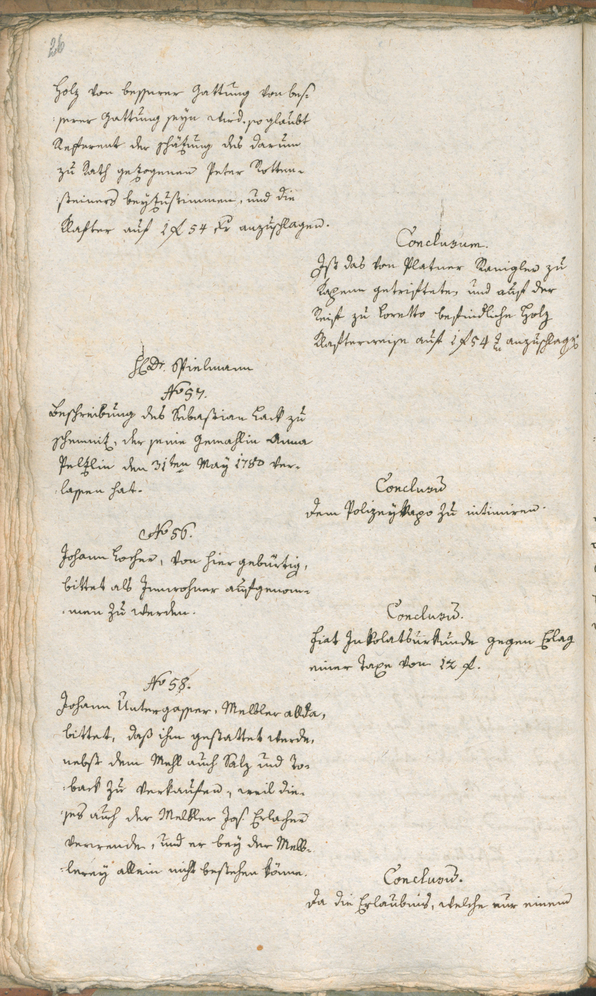 26
Holz von besserer Gattung von bes-
serer Gattung seyn wird, so glaubt
Referent der Schätzung des darum
zu Rath gezogenen Peter Rotten-
steiners beyzustimmen, und die
Klafter auf 1 f 54 xr anzuschlagen.
Conclusum.
Ist das von Platner Raniglen zu
getriftete, und auf der
Reif zu Loretto befindliche Holz
Klafterweise auf 1 f 54 x anzuschlagen
H. Dr. Spielmann
No 57.
Beschreibung des Sebastian Lack zu
Schemnitz, der seine Gemahlin Anna
Pelzlin den 31ten May 1780 ver-
lassen hat.
Conclusum
dem Polizeykapo zu intimiren.
No 56.
Johann Locher, von hier gebürtig,
bittet als Innwohner aufgenom-
men zu werden.
Conclusum.
Fiat Inkolatsurkunde gegen Erlag
einer Taxe von 12 f.
No 58.
Johann Untergasser, Melbler allda,
bittet, daß ihm gestattet werde,
nebst dem Mehl auch Salz und To-
back zu verkaufen, weil die-
ses auch der Melbler Jos Erlacher
verwende, und er bey der Melb-
lerey allein nicht bestehen könne.
Conclusum.
Da die Erlaubnis, welche nur einem